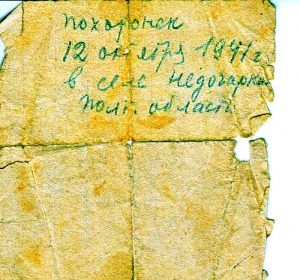 Похоронен
12 октября 1941 г
в селе Недогарки
Полт. област